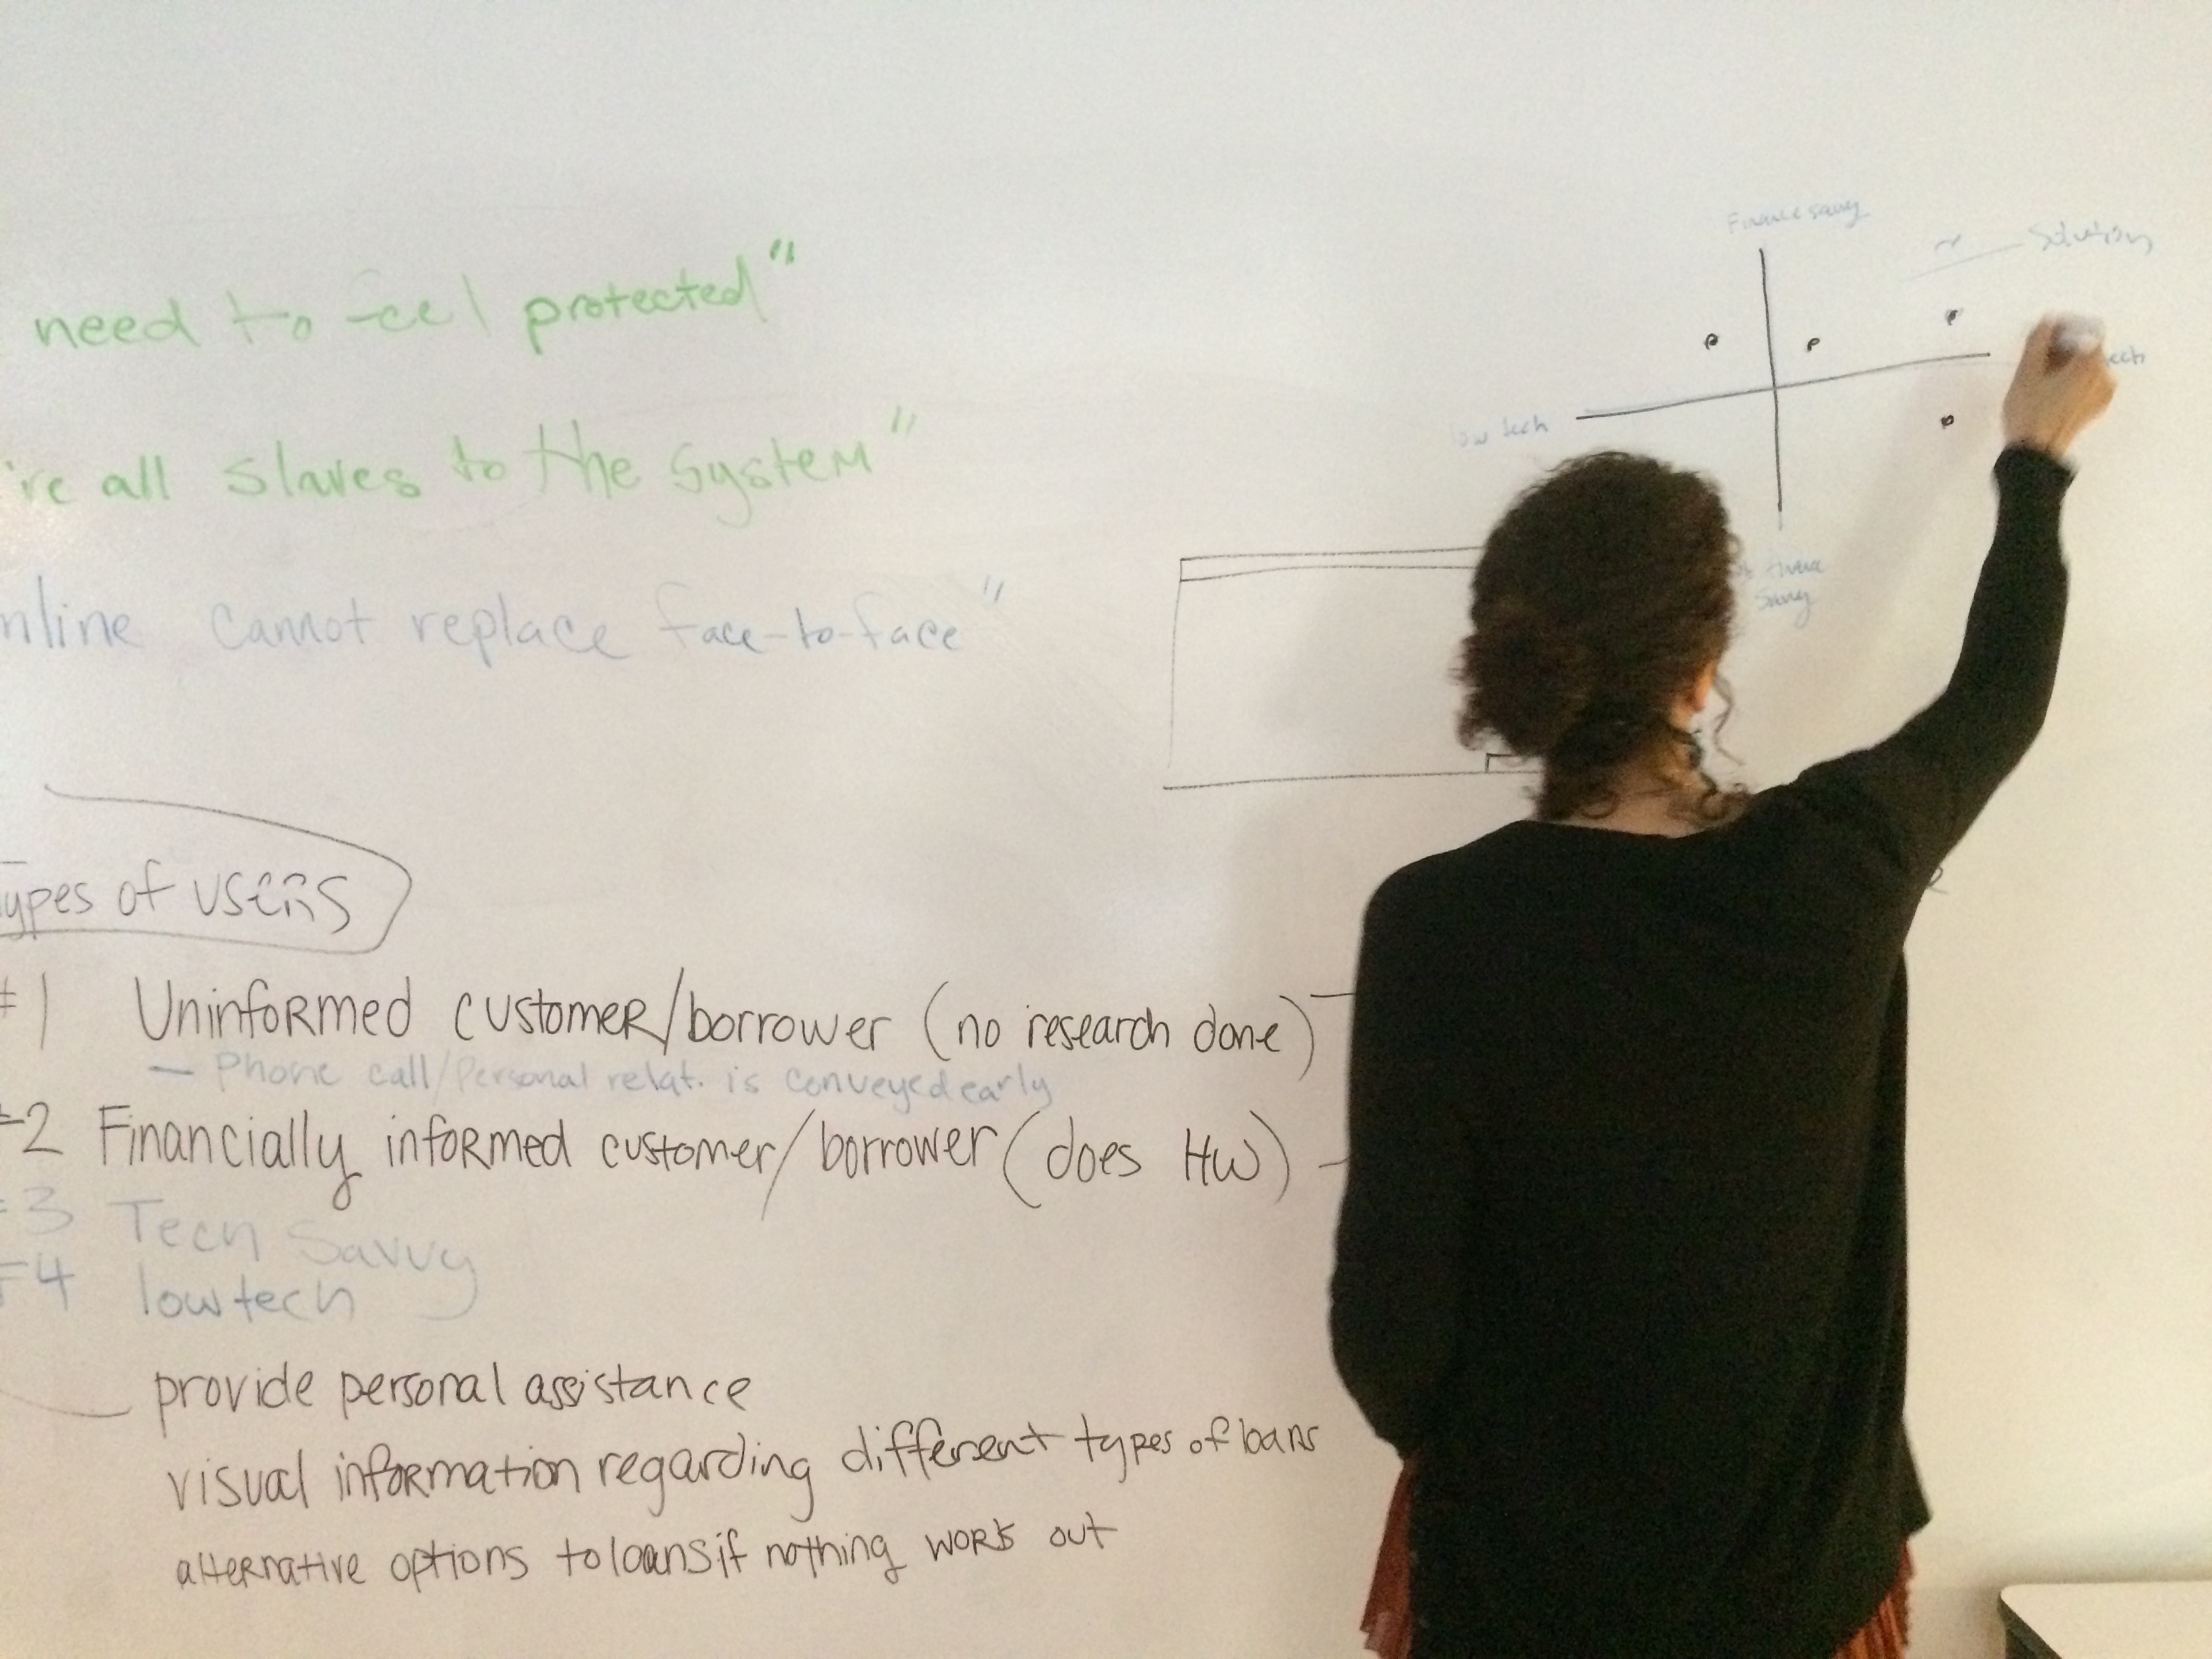 need to feel protected"
're all slaves to the system"
nline cannot replace face-to-face"
ypes of users
#1 Uninformed customer/borrower (no research done)
— Phone call/Personal relat. is conveyed early
#2 Financially informed customer/borrower (does HW)
#3 Tech Savvy
#4 low tech
provide personal assistance
visual information regarding different types of loans
alternative options to loans if nothing works out
Finance savvy
Solution
low tech
ech
savvy